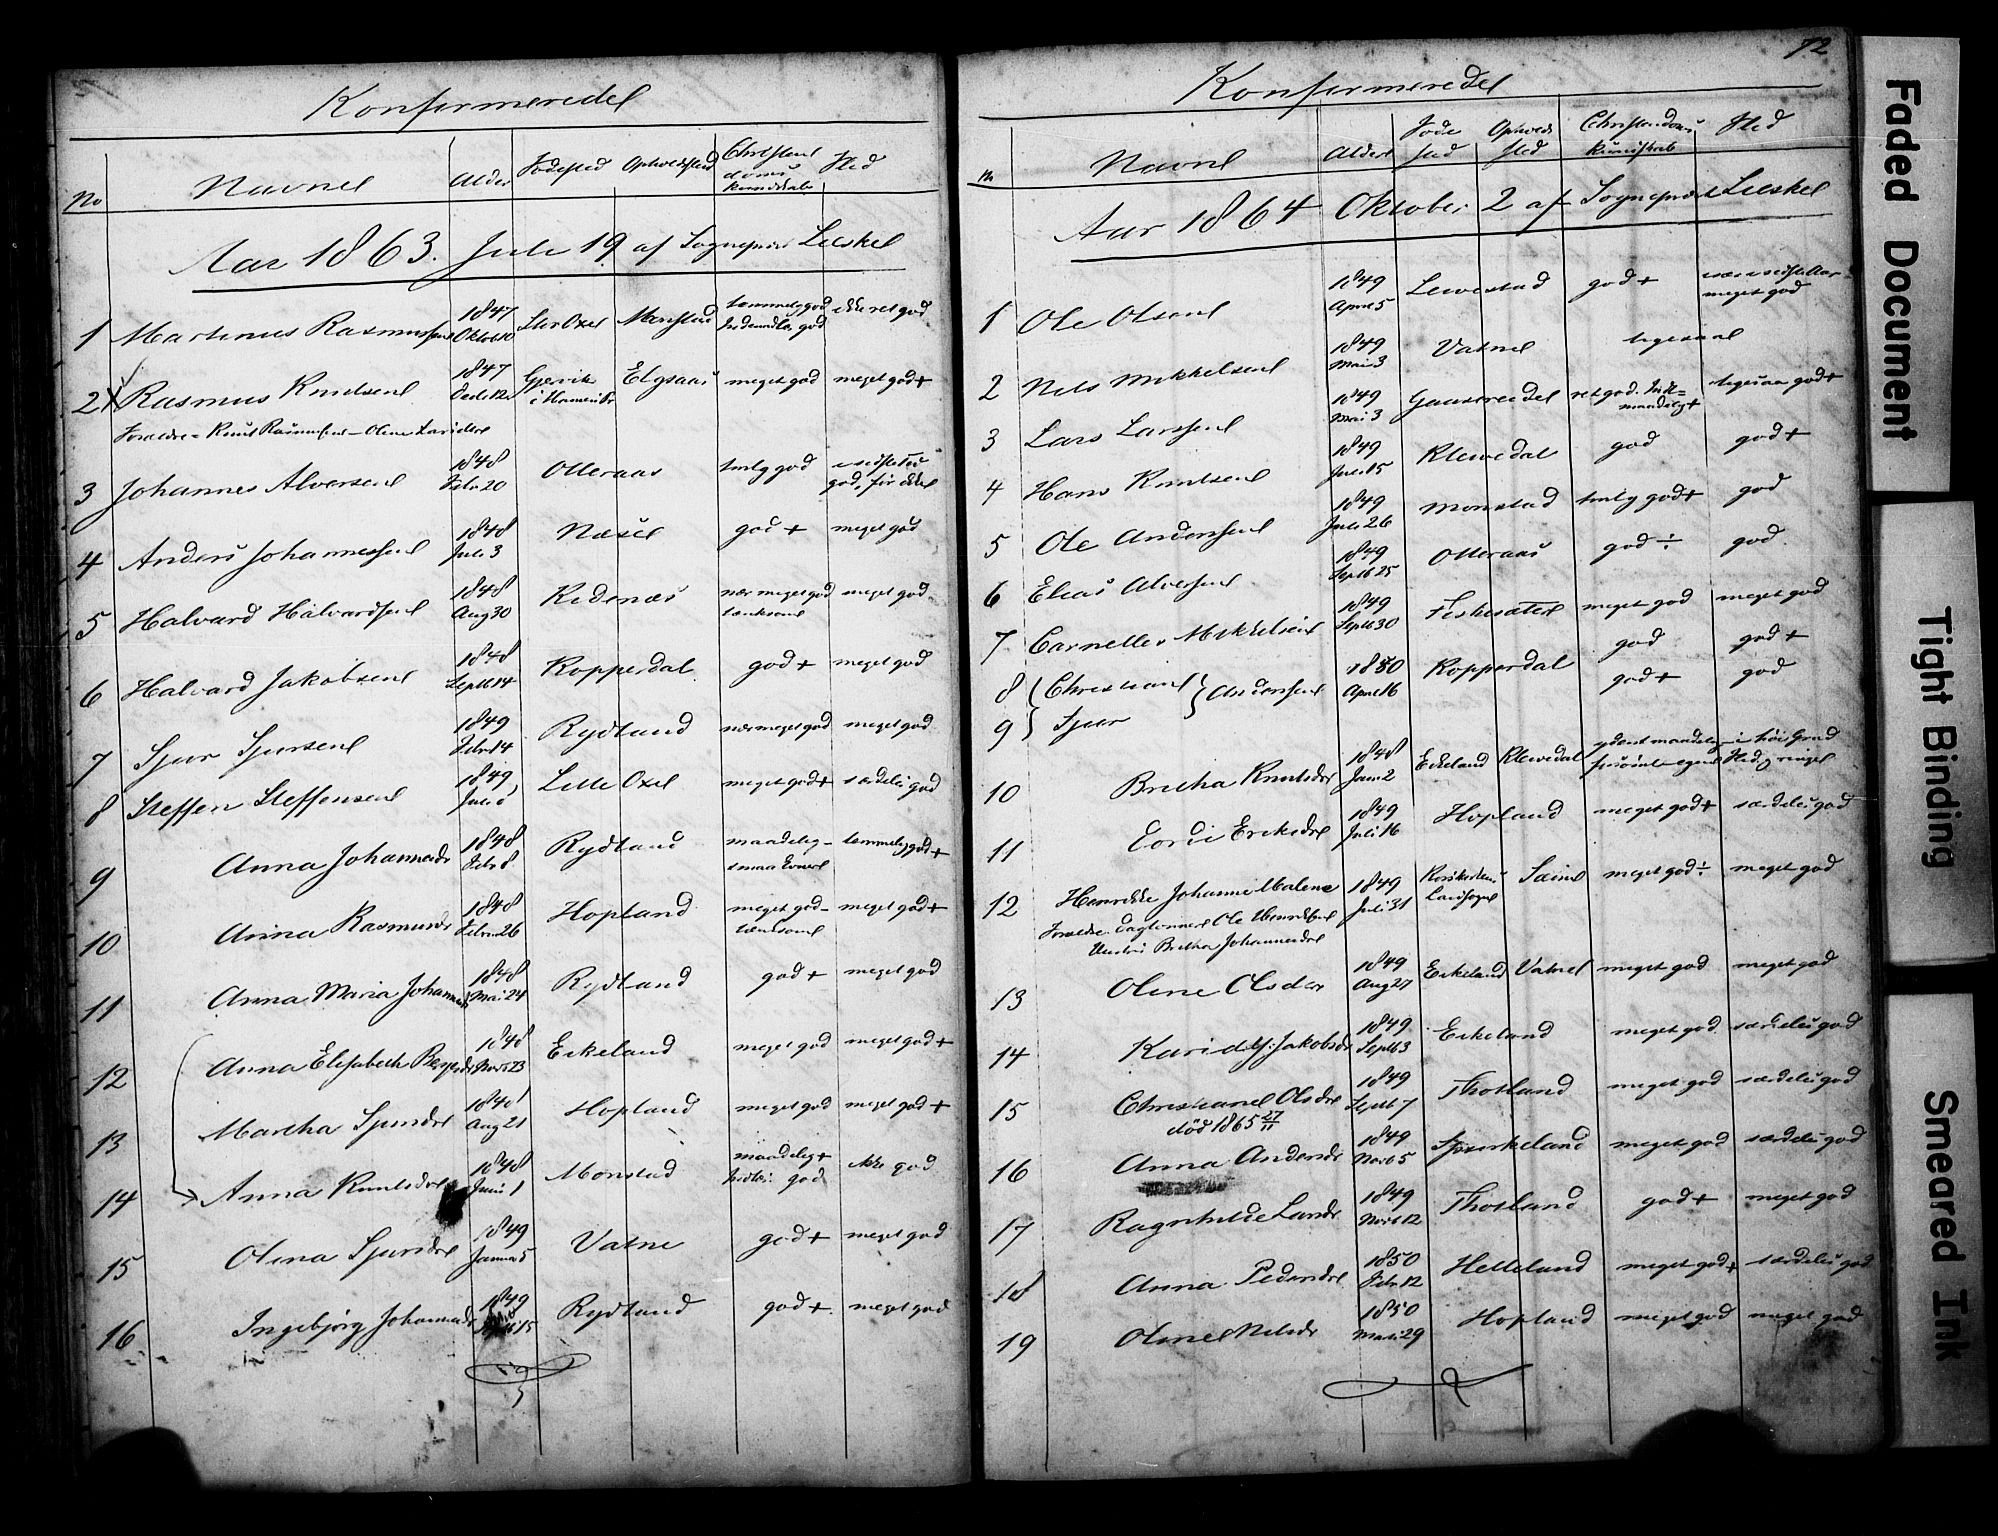 Konfirmerede
No Navne Alder Fødested Opholdssted Christendoms kundskab Flid
Aar 1863. Juli 19 af Sognepræst Lieskel
1 Martinus Rasmussen 1847 Oktob 10 Store Oxel Monstad temmelig god ikke ret god
2 Rasmus Knudsen 1847 Decb 12 Gjervik Elgsaas meget god meget god+
Forældre = Knud Rasmussen
3 Johannes Alversen 1848 Febr 20 Otteraas tmlg god
4 Anders Johannessen 1848 Juli 3 Næse god + meget god
5 Halvard Halvardsen 1848 Aug 30 Kidenæs nær meget god tænksom meget god
6 Halvard Jakobsen 1848 Septb 14 Kopperdal god + meget god
7 Sjur Sjursen 1849 Febr 14 Rydland nær meget god meget god
8 Steffen Steffensen 1849 Lille Oxel meget god+ særdeles god
9 Anna Johannesdr 1848 Febr 8 Rydland maadelig - smaa Evner temmelig god +
10 Anna Rasmusdr 1848 Febr 26 Hopland meget god - tænksom meget god +
11 Anna Maria Johannesdr 1848 Mai 24 Rydland god + meget god
12 Anna Elisabeth 1848 Novb 23 Eikeland meget god meget god +
13 Martha Sjursdr 1848 Aug 21 Hopland meget god meget god +
14 Anna Knudsdr 1848 Juni 1 Monstad maadelig + god ikke god
15 Olina Sjursdr 1849 Januar 5 Vatne god + meget god
16 Ingebjørg Johannesdr 1849 15 Rydland god +. meget god
72
Konfirmerede
No Navne Alder Føde sted Opholds sted Christendoms kundskab Flid
Aar 1864 Oktober 2 af Sognepræst Lieskel
1 Ole Olsen 1849 April 5 god + meget god
2 Nils Mikkelsen 1849 Mai 3 Vatne ligesaa
3 Lars Larssen 1849 Mai 3 ret god. god+
4 Hans Knudsen 1849 Juli 15 Klevedal god god +
5 Ole Anderssen 1849 Juli 26 Monstad tmlg god+ god
6 Elias Alversen 1849 Septb 25 Otteraas god ÷ god.
7 Carnelius Mikkelsen 1849 Septb 30 Fiskesæter meget god meget god
8 Christian } Anderssen 1850 April 16 Kopperdal god god +
9 Sjur god + god
10 Bretha Knudsdr 1848 Jan 2 Eikeland Klevedal i høi Grad
11 Eriksdr 1849 Juli 16 Hopland meget god + særdeles god
12 Henrikke Johanne Malene 1849 Juli 31 Korskirkens Landsogn Sæim meget god ÷ meget god
Forældre. Ole
Bretha Johannesdr
13 Oline Olsdr 1849 Aug 27 Eikeland Vatne meget god meget god
14 Kari Jakobsdr 1849 Septb 3 Eikeland meget god særdeles god
15 Christiane Olsdr 1849 Septb 7 Thotland meget god særdeles god
død 1865 27/11
16 Anna Andersdr 1849 Novb 5 Spurkeland meget god særdeles god
17 Ragnhilde Larsdr 1849 Novb 12 Thotland god + meget god
18 Anna Pedersdr 1850 Febr 12 Helleland meget god + særdeles god
19 Oline Nilsdr 1850 Marts 29 Hopland meget god meget god
Faded Document
Tight Binding
Smeared Ink